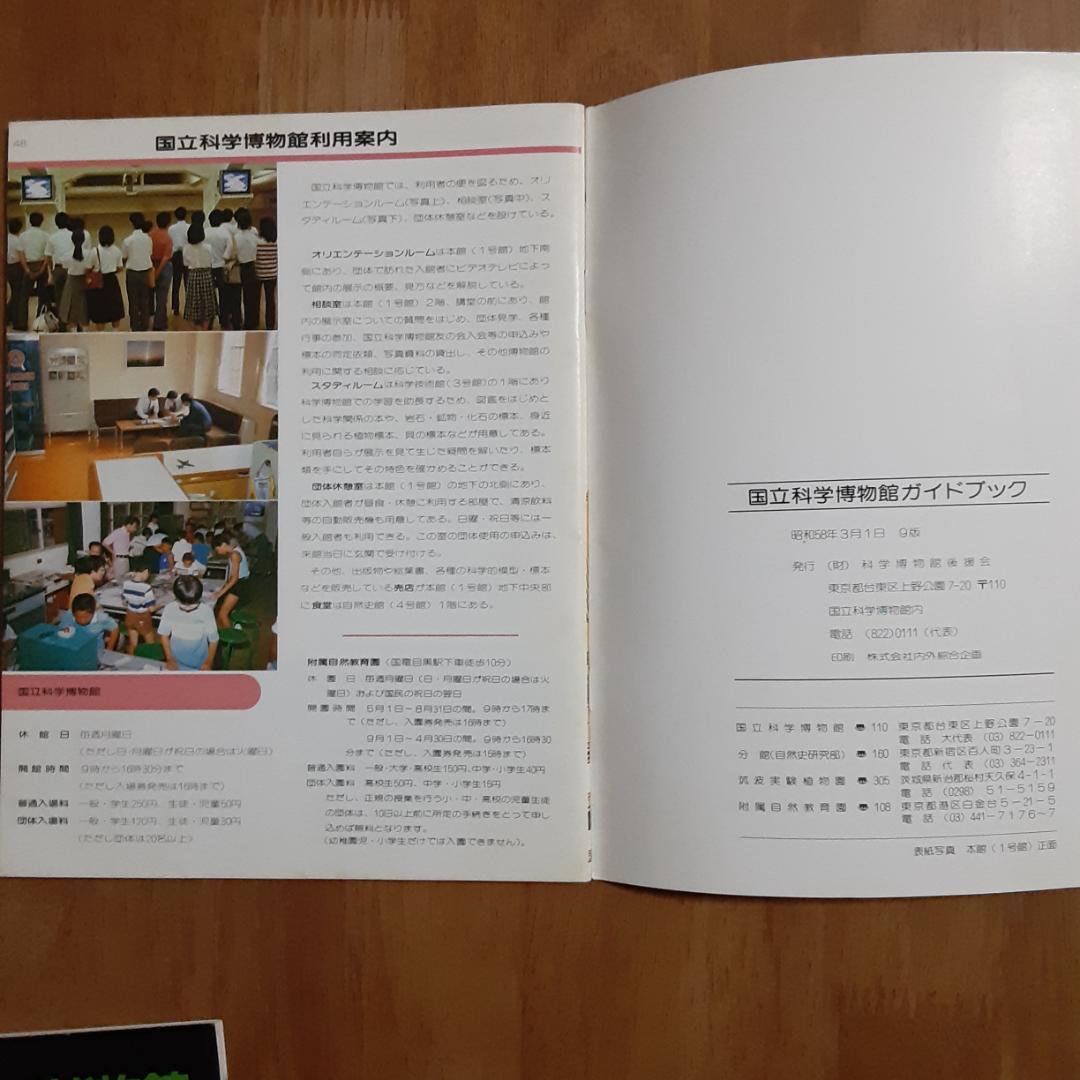 48
国立科学博物館利用案内
国立科学博物館では、利用者の便を図るため、オリ
エンテーションルーム(写真上)、相談室(写真中)、ス
タディルーム(写真下)、団体休憩室などを設けている。
オリエンテーションルームは本館（1号館）地下南
側にあり、団体で訪れた入館者にビデオテレビによっ
て館内の展示の概要、見方などを解説している。
相談室は本館（1号館）2階、講堂の前にあり、館
内の展示室についての質問をはじめ、団体見学、各種
行事の参加、国立科学博物館友の会入会等の申込みや
標本の同定依頼、写真資料の貸出し、その他博物館の
利用に関する相談に応じている。
スタディルームは科学技術館(3号館)の1階にあり
科学博物館での学習を助長するため、図鑑をはじめと
した科学関係の本や、岩石・鉱物・化石の標本、身近
に見られる植物標本、貝の標本などが用意してある。
利用者自らが展示を見て生じた疑問を解いたり、標本
類を手にしてその特色を確かめることができる。
団体休憩室は本館（1号館）の地下の北側にあり、
団体入館者が昼食・休憩に利用する部屋で、清涼飲料
等の自動販売機も用意してある。日曜・祝日等には一
般入館者も利用できる。この室の団体使用の申込みは、
来館当日に玄関で受け付ける。
その他、出版物や絵葉書、各種の科学的模型・標本
などを販売している売店が本館（1号館）地下中央部
に食堂は自然史館（4号館）1階にある。
国立科学博物館
休館日 毎週月曜日
(ただし日・月曜日が祝日の場合は火曜日)
開館時間 9時から16時30分まで
(ただし入場券発売は16時まで)
普通入場料 一般・学生250円、生徒・児童50円
団体入場料 一般・学生120円、生徒・児童30円
(ただし団体は20名以上)
附属自然教育園（国電目黒駅下車徒歩10分）
休園日 毎週月曜日（日・月曜日が祝日の場合は火
曜日）および国民の祝日の翌日
開園時間 5月1日〜8月31日の間。9時から17時ま
で（ただし、入園券発売は16時まで）
9月1日〜4月30日の間。9時から16時30
分まで（ただし、入園券発売は16時まで）
普通入園料 一般・大学・高校生150円、中学・小学生40円
団体入園料 高校生50円、中学・小学生15円
ただし、正規の授業を行う小・中・高校の児童生徒
の団体は、10日以上前に所定の手続きをとって申し
込めば無料となります。
（幼稚園児・小学生だけでは入園できません）。
国立科学博物館ガイドブック
昭和58年3月1日 9版
発行 （財）科学博物館後援会
東京都台東区上野公園7-20 〒110
国立科学博物館内
電話 (822)0111（代表）
印刷 株式会社内外綜合企画
国立科学博物館 〒110 東京都台東区上野公園7-20
電話 大代表 (03)822-0111
分館(自然史研究部) 〒160 東京都新宿区百人町3-23-1
電話 代表 (03)364-2311
筑波実験植物園 〒305 茨城県新治郡桜村天久保4-1-1
電話 (0298) 51-5159
附属自然教育園 〒108 東京都港区白金台5-21-5
電話 (03)441-7176~7
表紙写真 本館（1号館）正面